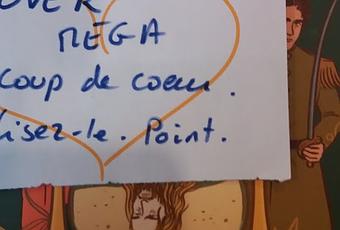 OVER
MEGA
coup de coeur.
Lisez-le. Point.